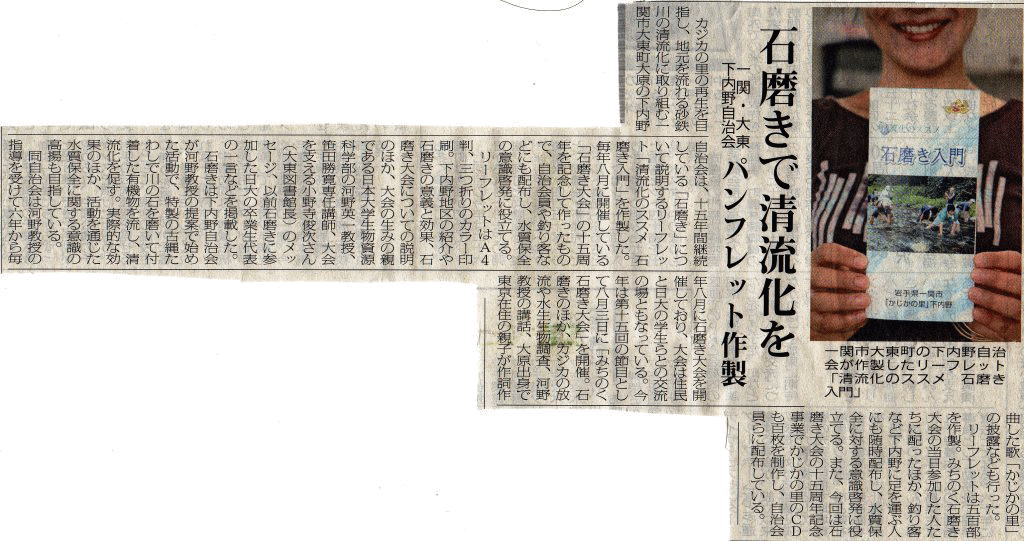 石磨きで清流化を
一関・大東
下内野自治会
パンフレット作製
カジカの里の再生を目
指し、地元を流れる砂鉄
川の清流化に取り組む一
関市大東町大原の下内野
自治会は、十五年間継続
している「石磨き」につ
いて説明するリーフレッ
ト「清流化のススメ　石
磨き入門」を作製した。
毎年八月に開催している
「石磨き大会」の十五周
年を記念して作ったもの
で、自治会員や釣り客な
どにも配布し、水質保全
の意識啓発に役立てる。
リーフレットはA4
判、三つ折りのカラー印
刷。下内野地区の紹介や
石磨きの意義と効果、石
磨き大会についての説明
のほか、大会の生みの親
である日本大学生物資源
科学部の河野英一教授、
笹田勝寛専任講師、大会
を支える小野寺俊次さん
（大東図書館長）のメッ
セージ、以前石磨きに参
加した日大の卒業生代表
の一言などを掲載した。
石磨きは下内野自治会
が河野教授の提案で始め
た活動で、特製の
わしで川の石を磨いて付
着した有機物を流し、清
流化を促す。実際的な効
果のほか、活動を通じた
水質保全に関する意識の
高揚も目指している。
同自治会は河野教授の
指導を受けて六年から毎
年八月に石磨き大会を開
催しており、大会は住民
と日大の学生らとの交流
の場ともなっている。今
年は第十五回の節目とし
て八月三日に「みちのく
石磨き大会」を開催。石
磨きのほか、カジカの放
流や水生生物調査、河野
教授の講話、大原出身で
東京在住の親子が作詞作
曲した歌「かじかの里」
の披露なども行った。
リーフレットは五百部
を作製。みちのく石磨き
大会の当日参加した人た
ちに配ったほか、釣り客
など下内野に足を運ぶ人
にも随時配布し、水質保
全に対する意識啓発に役
立てる。また、今回は石
磨き大会の十五周年記念
事業でかじかの里のCD
も百枚を制作し、自治会
員らに配布している。
清流化のススメ
石磨き入門
岩手県一関市
「かじかの里」下内野
一関市大東町の下内野自治
会が作製したリーフレット
「清流化のススメ　石磨き
入門」